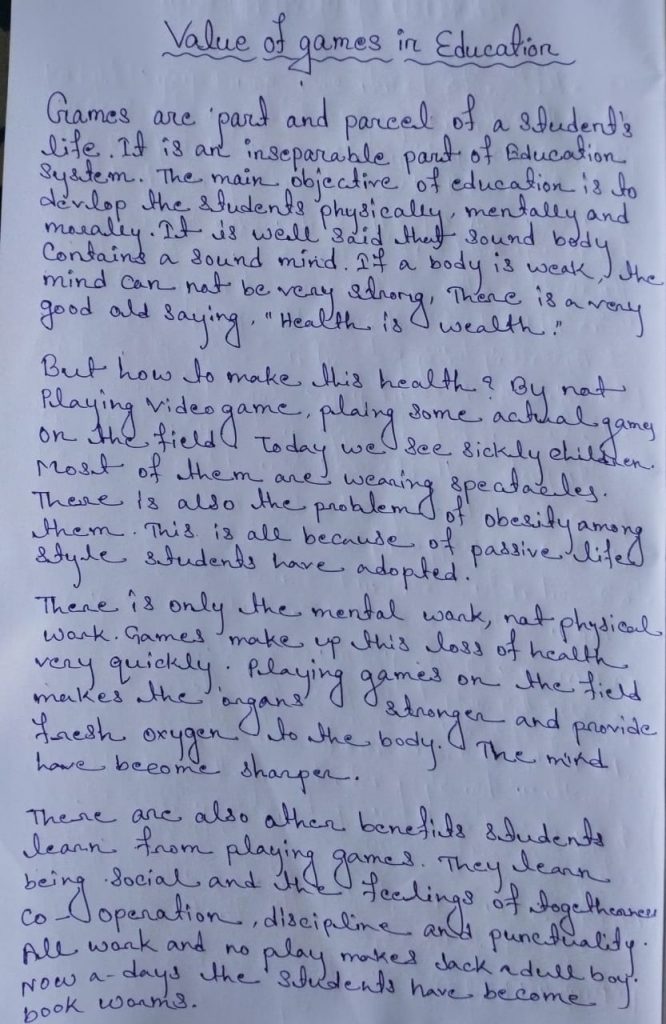 Value of games in Education
Games are part and parcel of a student's
life. It is an inseparable part of Education
System. The main objective of education is to
devlop the students physically, mentally and
morally. It is well said that sound body
Contains a sound mind. If a body is weak, the
mind can not be very strong, There is a very
good old saying, "Health is wealth."
But how to make this health? By not
Playing video game, plaing some actual games
on the field Today we see sickly children.
Most of them are wearing spectacles.
There is also the problem of obesity among
them. This is all because of passive life
style students have adopted.
There is only the mental work, not physical
work. Games make up this loss of health
very quickly. Playing games on the field
makes the organs stronger and provide
fresh oxygen to the body. The mind
have become sharper.
There are also other benefits students
learn from playing games. They learn
being social and the feelings of togetherness
Co-operation, discipline and punctuality.
All work and no play makes Jack a dull boy.
Now a-days the students have become
book worms.